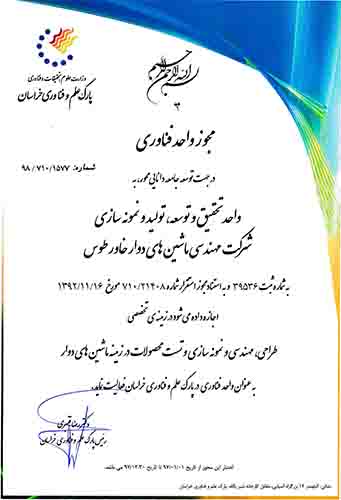 بسم الله الرحمن الرحیم
وزارت علوم، تحقیقات و فناوری
پارک علم و فناوری خراسان
مجوز واحد فناوری
شماره: ۹۸/۷۱۰/۱۵۷۷
در جهت توسعه جامعه دانایی محور، به
واحد تحقیق و توسعه، تولید و نمونه سازی
شرکت مهندسی ماشین های دوار خاور طوس
به شماره ثبت ۳۹۵۳۶ و به استناد مجوز استقرار شماره ۷۱۰/۲۱۴۰۸ مورخ ۱۳۹۲/۱۱/۱۶
اجازه داده می شود در زمینه ی تخصصی
طراحی، مهندسی و نمونه سازی و تست محصولات در زمینه ماشین های دوار
به عنوان واحد فناوری در پارک علم و فناوری خراسان فعالیت نماید.
دکتر رضا قنبری
رئیس پارک علم و فناوری خراسان
اعتبار این مجوز از تاریخ ۹۷/۰۱/۰۱ تا تاریخ ۹۷/۱۲/۳۰ می باشد.
نشانی: کیلومتر ۱۲ بزرگراه آسیایی، مقابل کارخانه شیر پگاه، پارک علم و فناوری خراسان